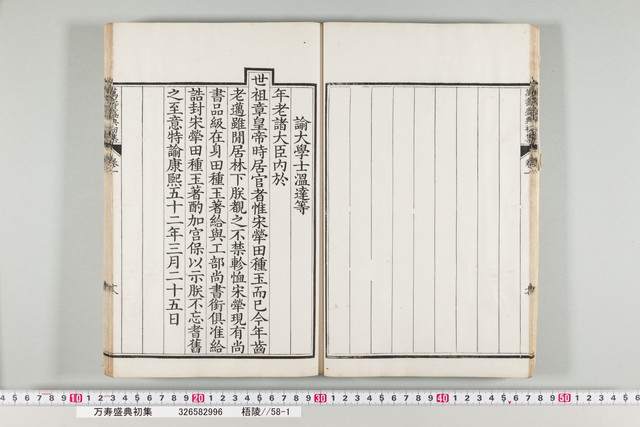 諭大學士溫達等
年老諸大臣內於
世祖章皇帝時居官者惟宋犖田種玉而已今年齒
老邁雖閒居林下朕覩之不禁軫恤宋犖現有尚
書品級在身田種玉著給與工部尚書銜俱准給
誥封宋犖田種玉著酌加宮保以示朕不忘耆舊
之至意特諭康熙五十二年三月二十五日
卷一
万寿盛典初集 326582996 梧陵//58-1
10 20 30 40 50